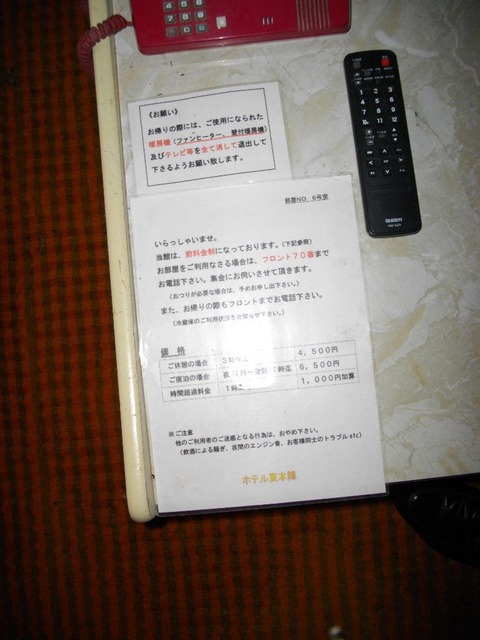 《お願い》
お帰りの際には、ご使用になられた
暖房機（ファンヒーター、壁付暖房機）
及びテレビ等を全て消して退出して
下さるようお願い致します。
部屋NO．6号室
いらっしゃいませ。
当館は、前料金制になっております。（下記参照）
お部屋をご利用なさる場合は、フロント７０番まで
お電話下さい。集会にお伺させて頂きます。
（おつりが必要な場合は、予めお申し出下さい。）
また、お帰りの際もフロントまでお電話下さい。
（冷蔵庫のご利用状況をお知らせ下さい。）
価　格
ご休憩の場合 4，500円
ご宿泊の場合 6，500円
時間超過料金 1，000円加算
※ご注意
他のご利用者のご迷惑となる行為は、おやめ下さい。
（飲酒による騒ぎ、夜間のエンジン音、お客様同士のトラブル etc）
ホテル東本陣
1 2 3
4 5 6
7 8 9
Uniden